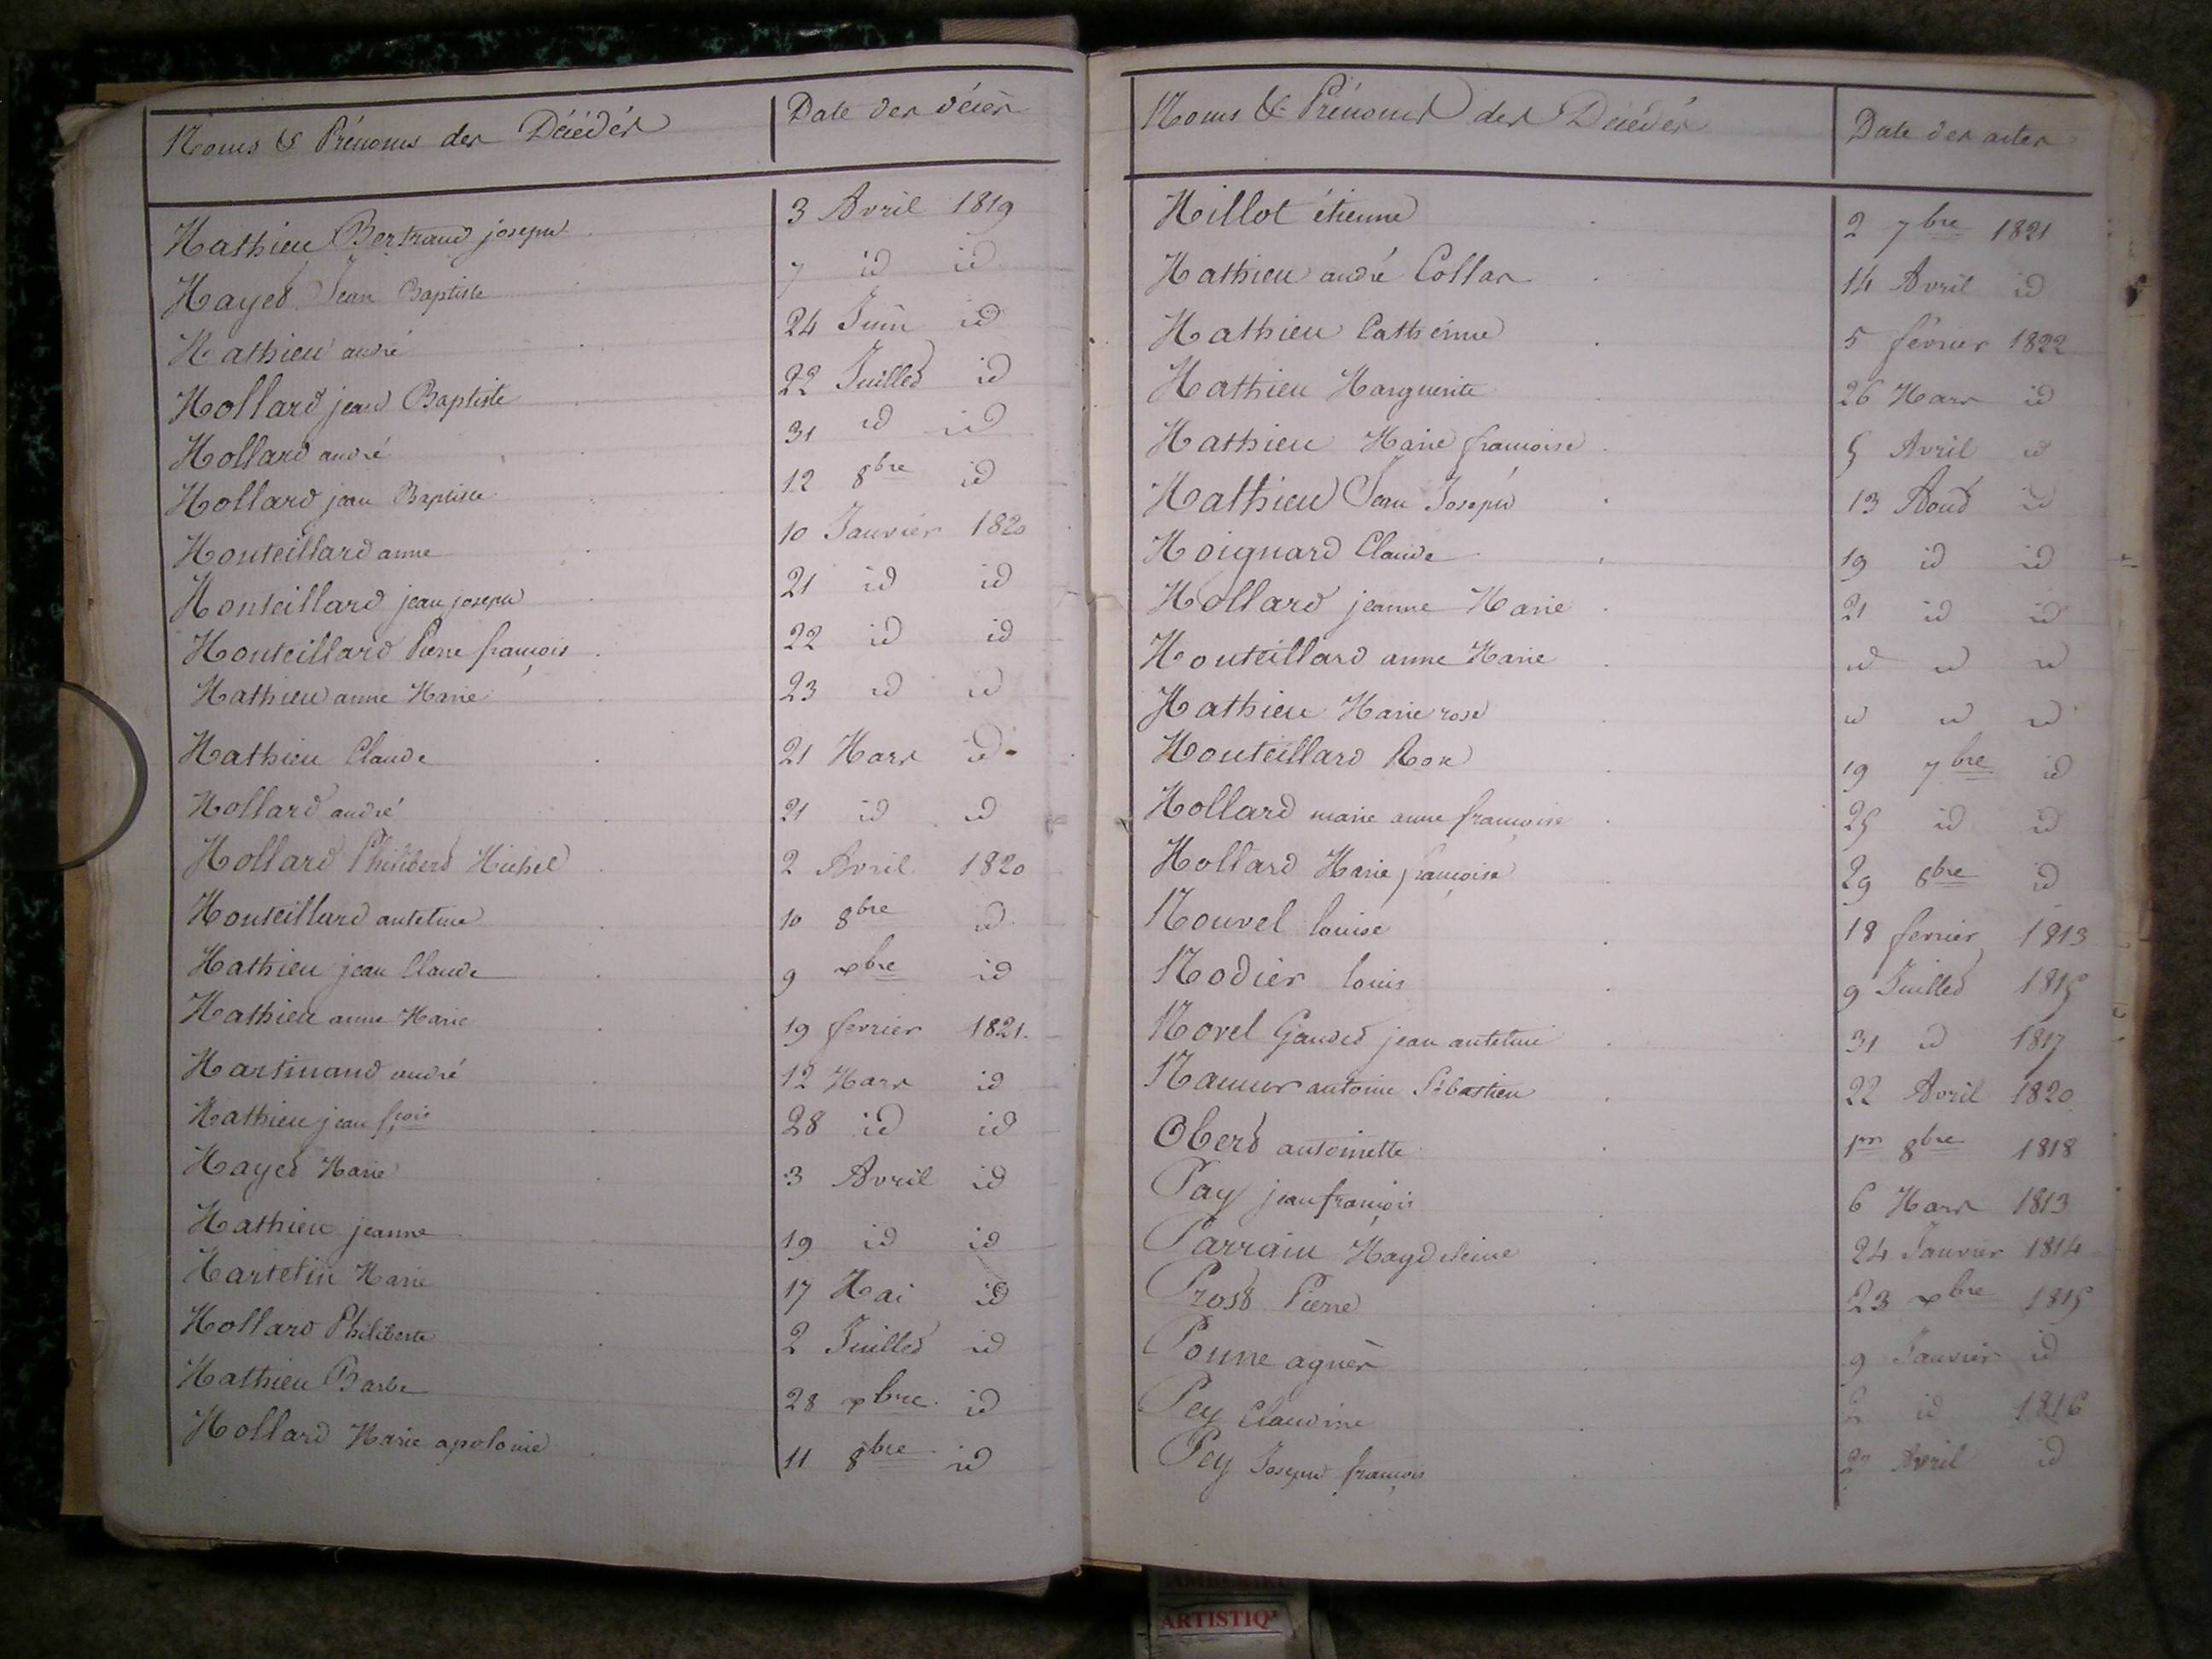 Noms & Prénoms des Décédés Date des décès
Mathieu Bertrand joseph 3 Avril 1819
Mayet Jean Baptiste 7 id id
Mathieu andré 24 Juin id
Mollard jean Baptiste 22 Juillet id
Mollard andré 31 id id
Mollard jean Baptiste 12 8bre id
Monteillard anne 10 Janvier 1820
Monteillard jean joseph 21 id id
Monteillard Pierre françois 22 id id
Mathieu anne Marie 23 id id
Mathieu Claude 21 Mars id
Mollard andré 21 id id
Mollard Philibert Michel 2 Avril 1820
Monteillard antelme 10 8bre id
Mathieu jean Claude 9 xbre id
Mathieu anne Marie 19 fevrier 1821
Martinand andré 12 Mars id
Mathieu jean fçois 28 id id
Mayet Marie 3 Avril id
Mathieu jeanne 19 id id
Martelin Marie 17 Mai id
Mollard Philiberte 2 Juillet id
Mathieu Barbe 28 xbre id
Mollard Marie apolonie 11 8bre id
Noms & Prénoms des Décédés Date des actes
Millot étienne 2 7bre 1821
Mathieu andré Collas 14 Avril id
Mathieu Catherine 5 février 1822
Mathieu Marguerite 26 Mars id
Mathieu Marie françoise 5 Avril id
Mathieu Jean Joseph 13 Aout id
Moignard Claude 19 id id
Mollard jeanne Marie 21 id id
Monteillard anne Marie id id id
Mathieu Marie rose id id id
Monteillard Rox 19 7bre id
Mollard marie anne françoise 25 id id
Mollard Marie françoise 29 8bre id
Nouvel louise 18 fevrier 1813
Nodier louis 9 Juillet 1815
Novel Gaudet jean antelme 31 id 1817
Namur antoine Sébastien 22 Avril 1820
Obert antoinette 1er 8bre 1818
Pay jean françois 6 Mars 1813
Parrain Magdeleine 24 Janvier 1814
Prost Pierre 23 xbre 1815
Ponne agnès 9 Janvier id
Pey Claudine 2 id 1816
Pey Joseph françois Avril id
ARTISTIQ